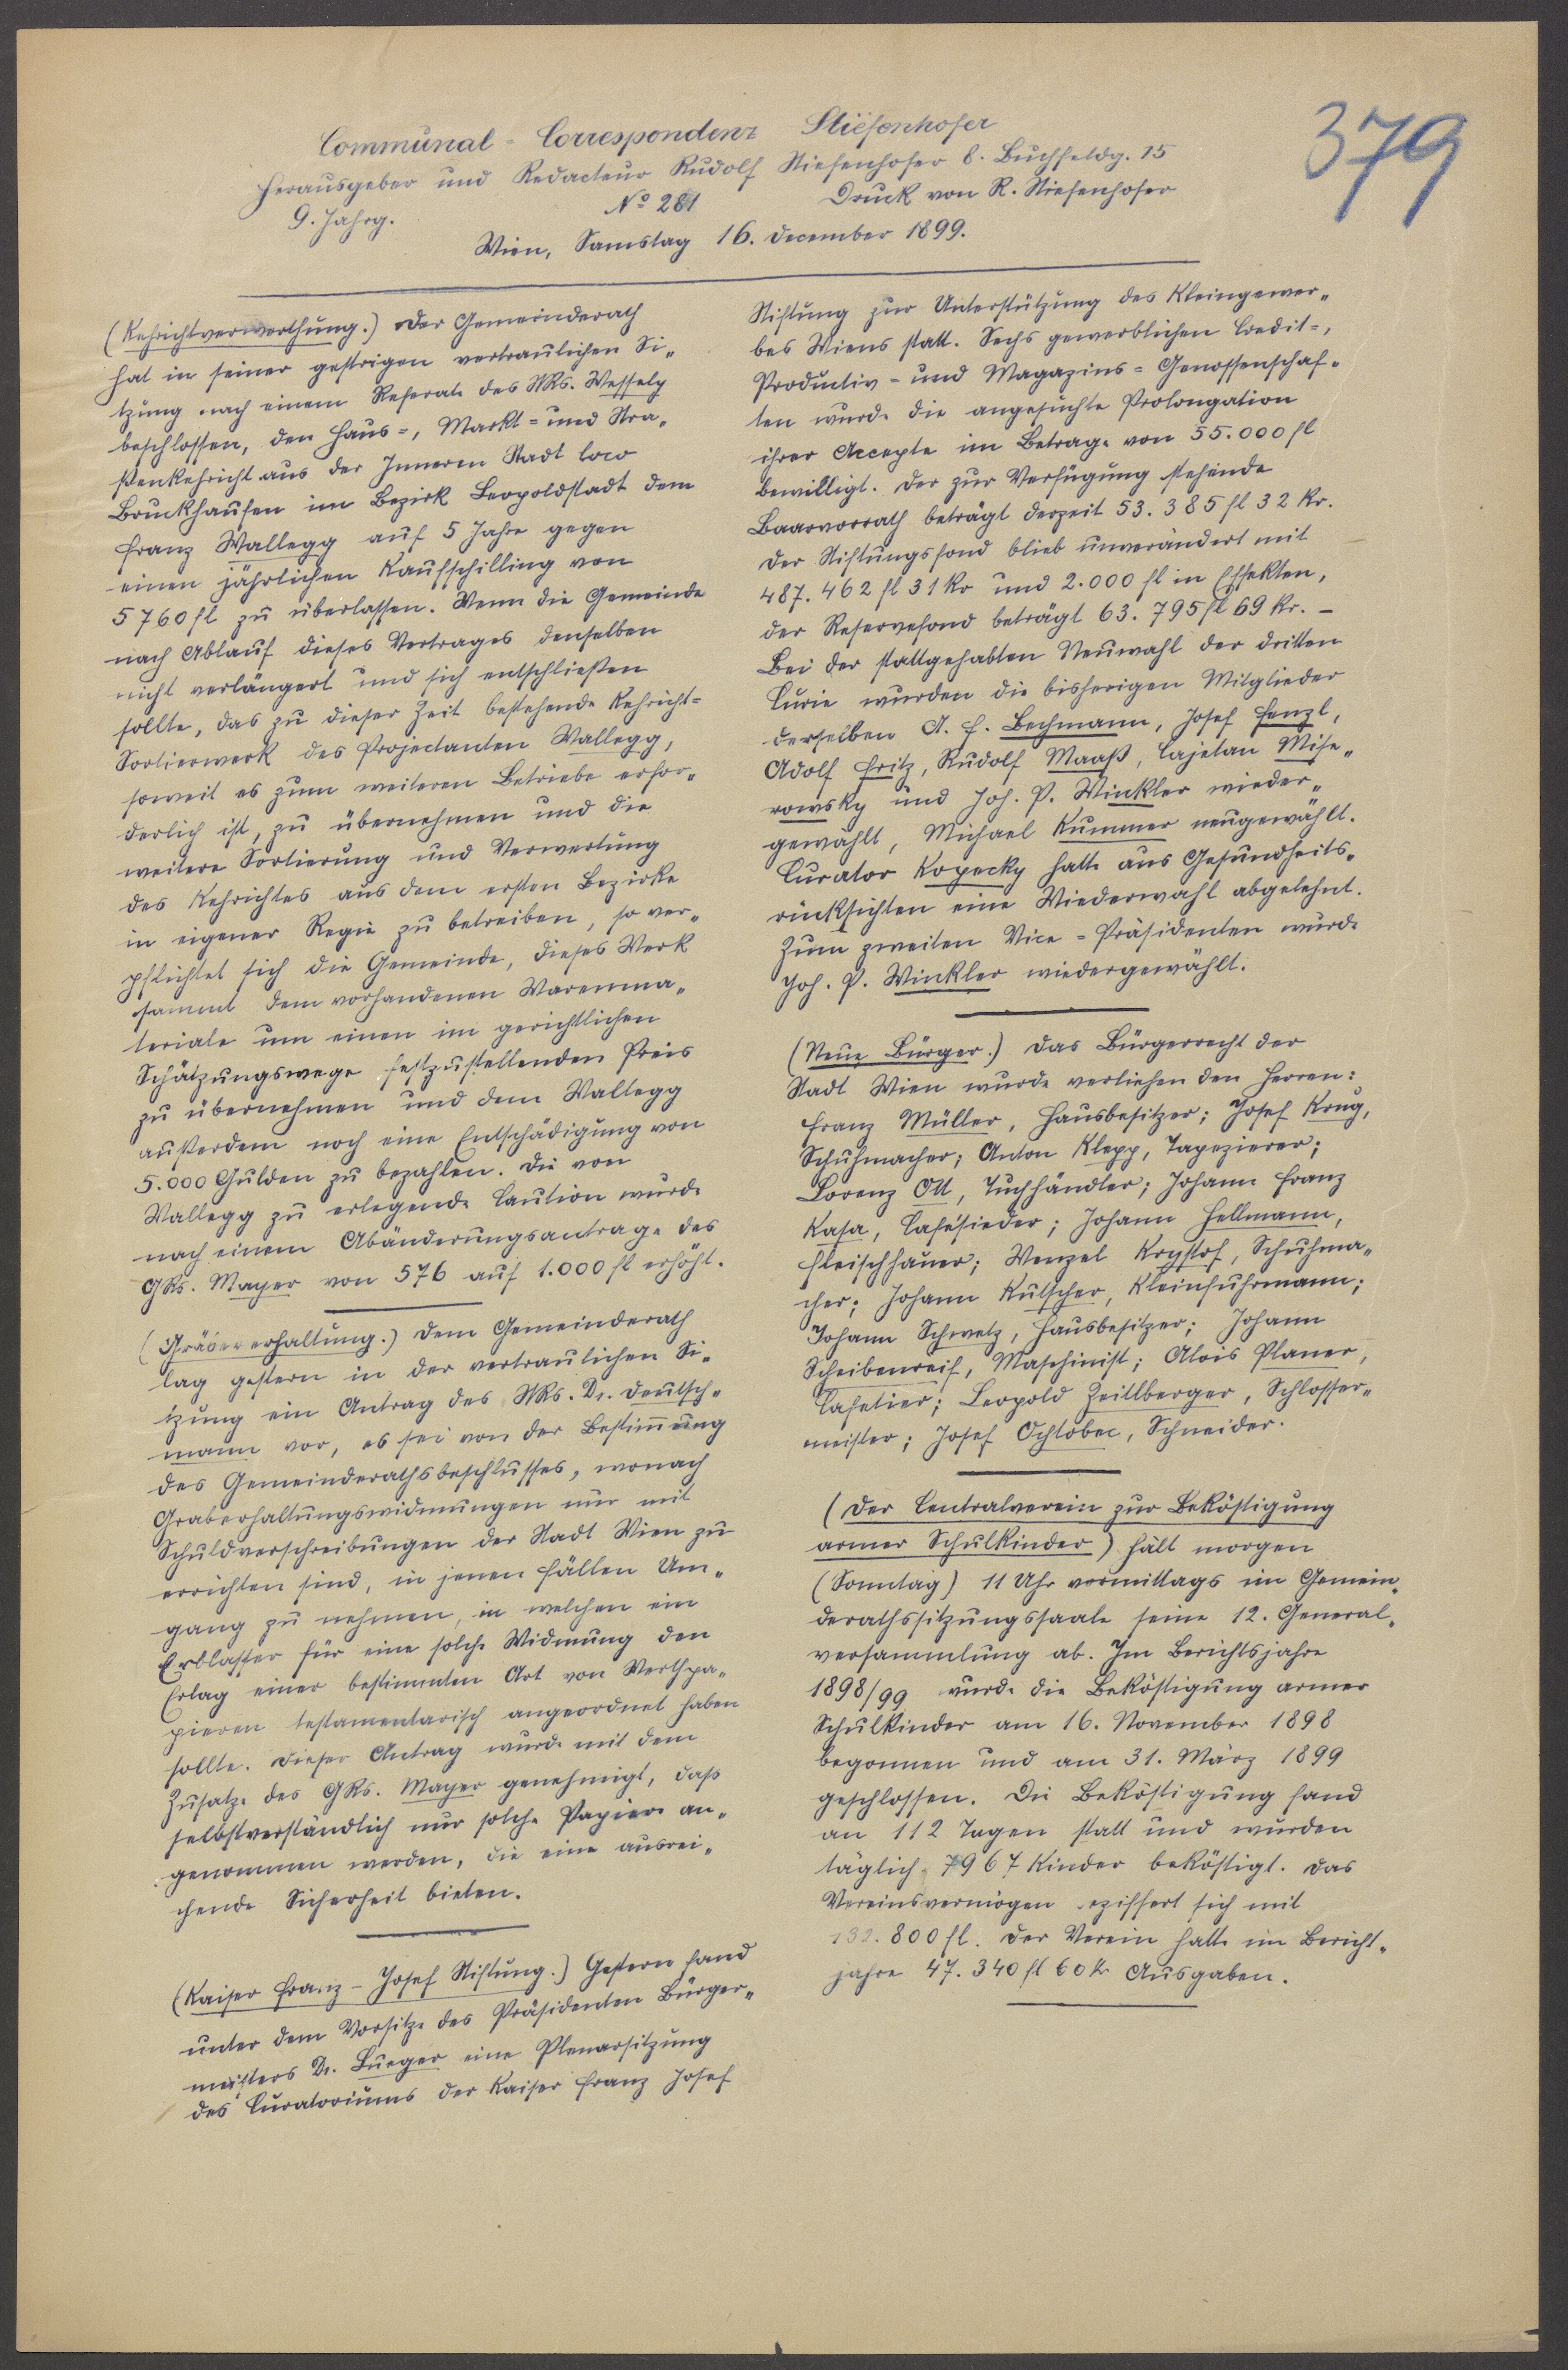 379
Communal-Correspondenz Stiefenhofer
Herausgeber und Redacteur Rudolf Stiefenhofer 8. Buchfeldg. 15
9. Jahrg. No 281 Druck von R. Stiefenhofer
Wien, Samstag 16. December 1899.
(Kehrichtverwerthung.) Der Gemeinderath
hat in seiner gestrigen vertraulichen Si-
tzung nach einem Referate des StRs. Wessely
beschlossen, den Haus-, Markt- und Stra-
ßenkehricht aus der Inneren Stadt loco
Bruckhaufen im Bezirk Leopoldstadt dem
Franz Wallegg auf 5 Jahre gegen
einen jährlichen Kaufschilling von
5760 fl zu überlassen. Wenn die Gemeinde
nach Ablauf dieses Vertrages denselben
nicht verlängert und sich entschließen
sollte, das zu dieser Zeit bestehende Kehricht-
Sortierwerk des Projectanten Wallegg,
soweit es zum weiteren Betriebe erfor-
derlich ist, zu übernehmen und die
weitere Sortierung und Verwertung
des Kehrichtes aus dem ersten Bezirke
in eigener Regie zu betreiben, so ver-
pflichtet sich die Gemeinde, dieses Werk
sammt dem vorhandenen Warenma-
teriale um einen im gerichtlichen
Schätzungswege festzustellenden Preis
zu übernehmen und dem Wallegg
außerdem noch eine Entschädigung von
5.000 Gulden zu bezahlen. Die von
Wallegg zu erlegende Caution wurde
nach einem Abänderungsantrage des
GRs. Mayer von 576 auf 1.000 fl erhöht.
(Gräbererhaltung.) Dem Gemeinderath
lag gestern in der vertraulichen Si-
tzung ein Antrag des StRs. Dr. Deutsch-
mann vor, es sei von der Bestim̅ung
des Gemeinderathsbeschlusses, wonach
Graberhaltungswidmungen nur mit
Schuldverschreibungen der Stadt Wien zu
errichten sind, in jenen Fällen Um-
gang zu nehmen, in welchen ein
Erblasser für eine solche Widmung den
Erlag einer bestimmten Art von Werthpa-
pieren testamentarisch angeordnet haben
sollte. Dieser Antrag wurde mit dem
Zusatze des GRs. Mayer genehmigt, daß
selbstverständlich nur solche Papiere an-
genommen werden, die eine ausrei-
chende Sicherheit bieten.
(Kaiser Franz-Josef Stiftung.) Gestern fand
unter dem Vorsitze des Präsidenten Bürger-
meisters Dr. Lueger eine Plenarsitzung
des Curatoriums der Kaiser Franz Josef
Stiftung zur Unterstützung des Kleingewer-
bes Wiens statt. Sechs gewerblichen Credit-,
Productiv- und Magazins-Genossenschaf-
ten wurde die angesuchte Prolongation
ihrer Accepte im Betrage von 55.000 fl
bewilligt. Der zur Verfügung stehende
Baarvorrath beträgt derzeit 53.385 fl 32 kr.
Der Stiftungsfond blieb unverändert mit
487.462 fl 31 kr und 2.000 fl in Effekten,
der Reservefond beträgt 63.795 fl 69 kr. -
Bei der stattgehabten Neuwahl der dritten
Curie wurden die bisherigen Mitglieder
derselben A. F. Bechmann, Josef Fenzl,
Adolf Fritz, Rudolf Maaß, Cajetan Mise-
rowsky und Joh. P. Winkler wieder-
gewählt, Michael Kummer neugewählt.
Curator Kopecky hatte aus Gesundheits-
rücksichten eine Wiederwahl abgelehnt.
Zum zweiten Vice-Präsidenten wurde
Joh. P. Winkler wiedergewählt.
(Neue Bürger.) Das Bürgerrecht der
Stadt Wien wurde verliehen den Herren:
Franz Müller, Hausbesitzer; Josef Krug,
Schuhmacher; Anton Klepp, Tapezierer;
Lorenz Ott, Tuchhändler; Johann Franz
Kasa, Cafésieder; Johann Hellmann,
Fleischhauer; Wenzel Krystof, Schuhma-
cher; Johann Kutscher, Kleinfuhrmann;
Johann Schwetz, Hausbesitzer; Johann
Scheibenreif, Maschinist; Alois Planer,
Cafetier; Leopold Zeillberger, Schlosser-
meister; Josef Ochlobec, Schneider.
(Der Centralverein zur Beköstigung
armer Schulkinder) hält morgen
(Sonntag) 11 Uhr vormittags im Gemein-
derathssitzungssaale seine 12. General-
versammlung ab. Im Berichtsjahre
1898/99 wurde die Beköstigung armer
Schulkinder am 16. November 1898
begonnen und am 31. März 1899
geschlossen. Die Beköstigung fand
an 112 Tagen statt und wurden
täglich 7967 Kinder beköstigt. Das
Vereinsvermögen beziffert sich mit
132.800 fl. Der Verein hatte im Bericht-
jahre 47.340 fl 60 kr Ausgaben.